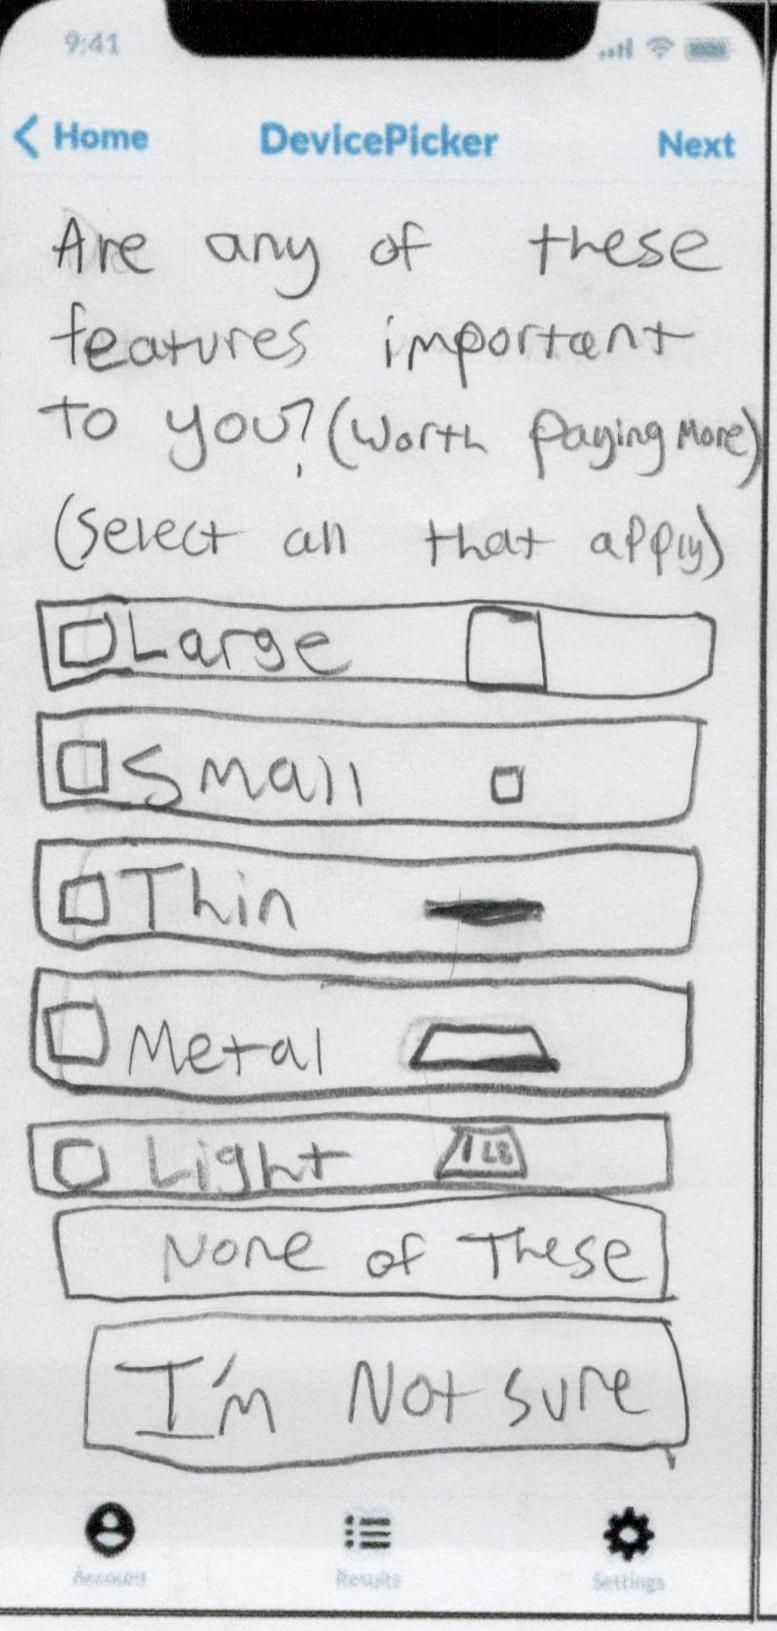 9:41
Home DevicePicker Next
Are any of these
features important
to you? (Worth Paying More)
(Select all that apply)
Large
Small
Thin
Metal
Light 1 LB
None of These
I'm Not sure
Account Results Settings